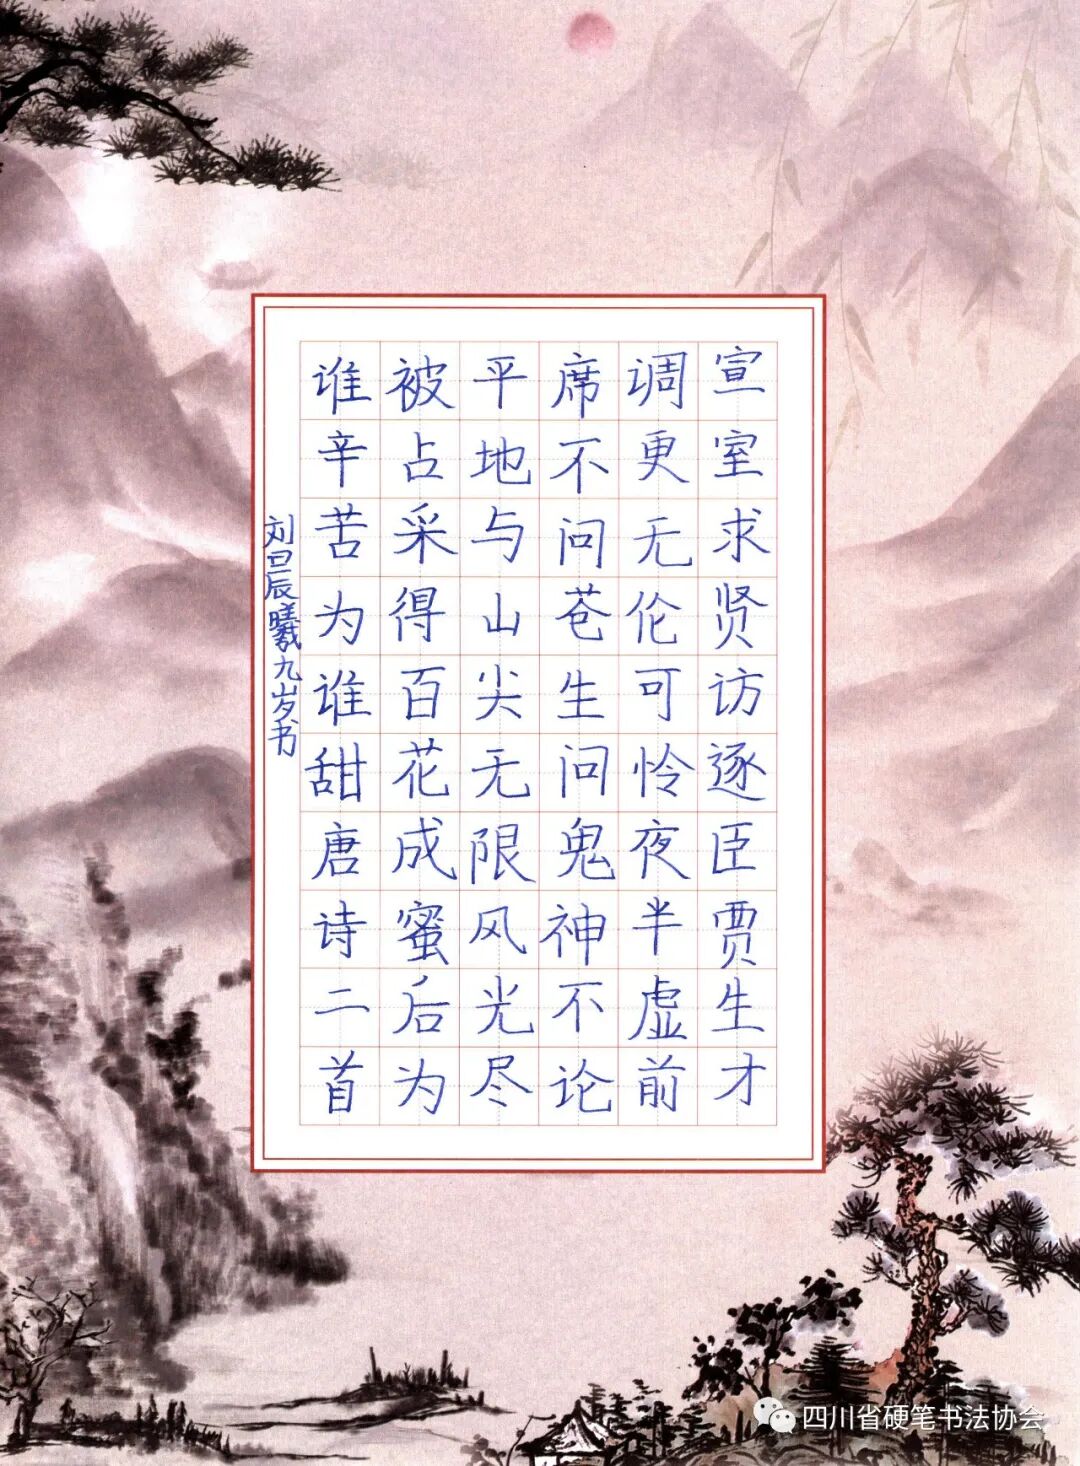 宣室求贤访逐臣贾生才
调更无伦可怜夜半虚前
席不问苍生问鬼神不论
平地与山尖无限风光尽
被占采得百花成蜜后为
谁辛苦为谁甜唐诗二首
刘旦辰曦九岁书
四川省硬笔书法协会